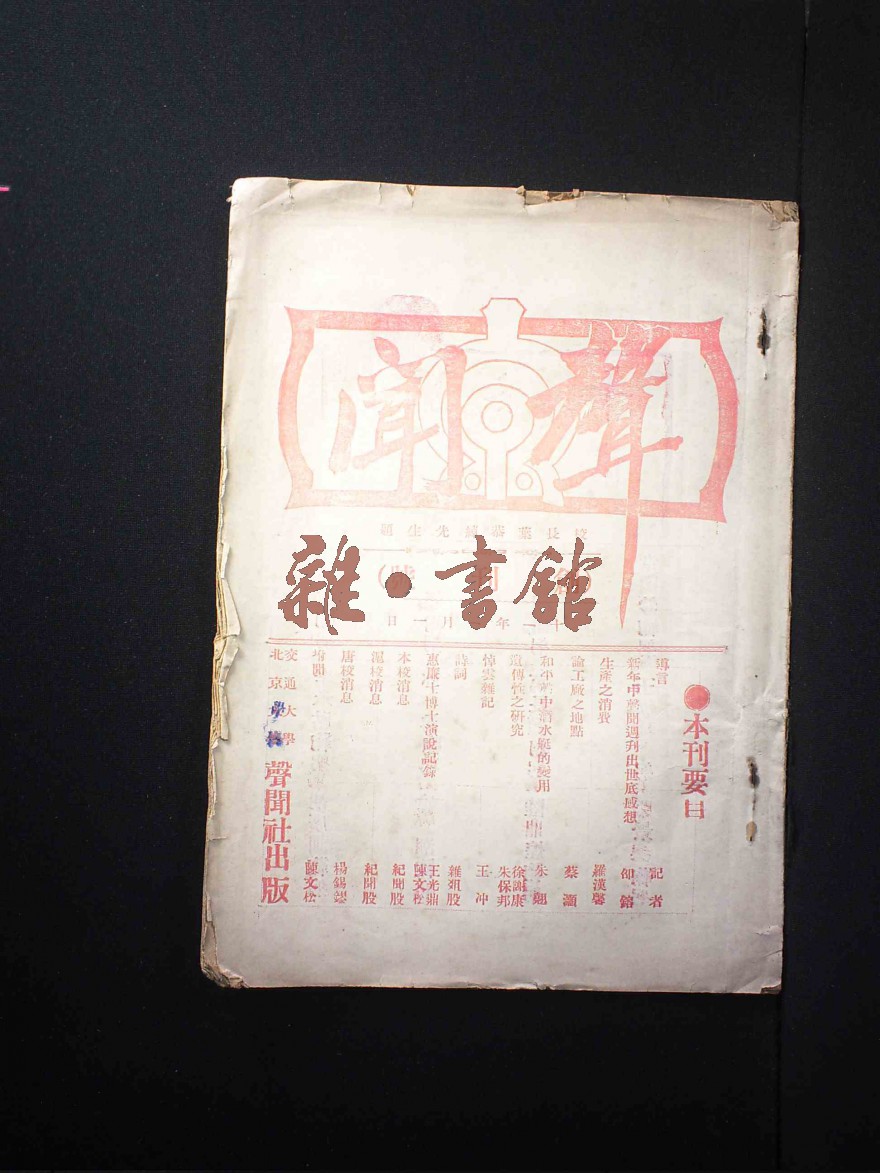 聲聞
校長葉恭綽先生題
雜·書館
本刊要目
導言 記者
新年中聲聞週刊出世底感想 邵鎔
生產之消費 羅漢馨
論工廠之地點 蔡灝
和平 中潛水艇的變用 朱
遺傳性之研究 徐謝康 朱保邦
悼雲雜記 王冲
詩詞 雜俎股
惠廉士博士演說記錄 王光鼎 陳文松
本校消息 紀聞股
滬校消息 紀聞股
唐校消息 楊錫鏐
陳文松
交通大學
北京學校
聲聞社出版